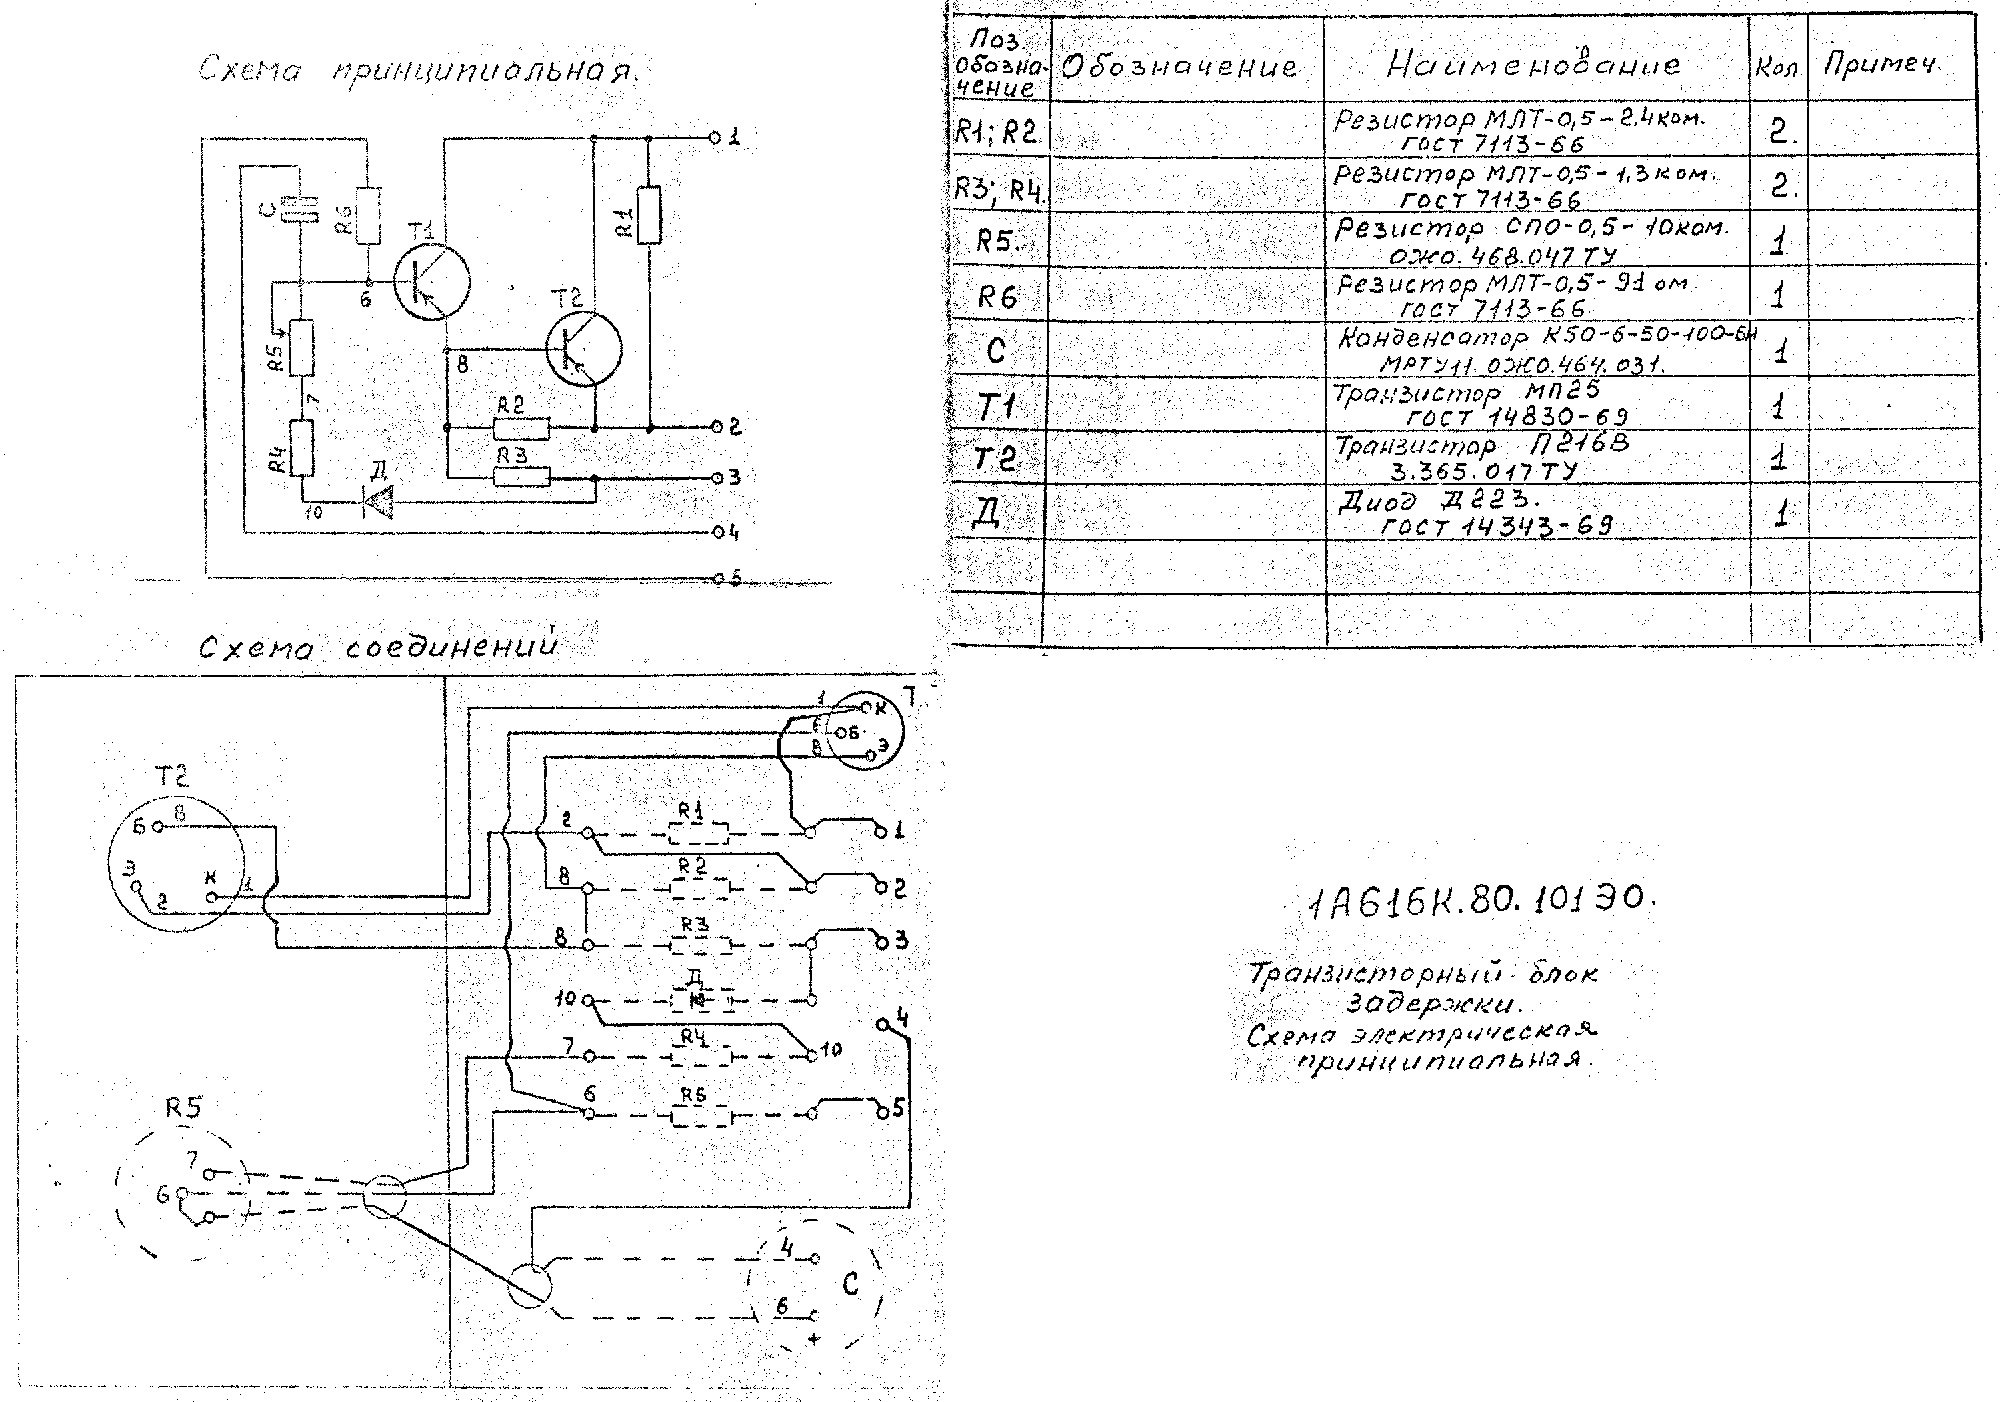 Схема принципиальная.
1
C
R6
T1
R1
6
T2
R5
8
7
R2
2
R4
R3
Д
3
10
4
5
Поз. обозна-чение
Обозначение
Наименование
Кол
Примеч.
R1; R2
Резистор МЛТ-0,5-2,4ком.
2.
ГОСТ 7113-66
R3; R4.
Резистор МЛТ-0,5-1,3ком.
2.
ГОСТ 7113-66
R5.
Резистор СПО-0,5-10ком.
1
ОЖО.468.047ТУ
R6
Резистор МЛТ-0,5-91ом.
1
ГОСТ 7113-66
C
Конденсатор К50-6-50-100-БН
1
МРТУ11.ОЖО.464.031.
T1
Транзистор МП25
1
ГОСТ 14830-69
T2
Транзистор П216В
1
3.365.017ТУ
Д
Диод Д223.
1
ГОСТ 14343-69
Схема соединений
1
К
Т
Б
8
Э
T2
Б
8
Э
2
К
1
2
R1
1
8
R2
2
8
R3
3
10
Д
4
7
R4
10
6
R6
5
R5
7
6
4
C
6
+
1А616К.80.101Э0.
Транзисторный блок
задержки.
Схема электрическая
принципиальная.